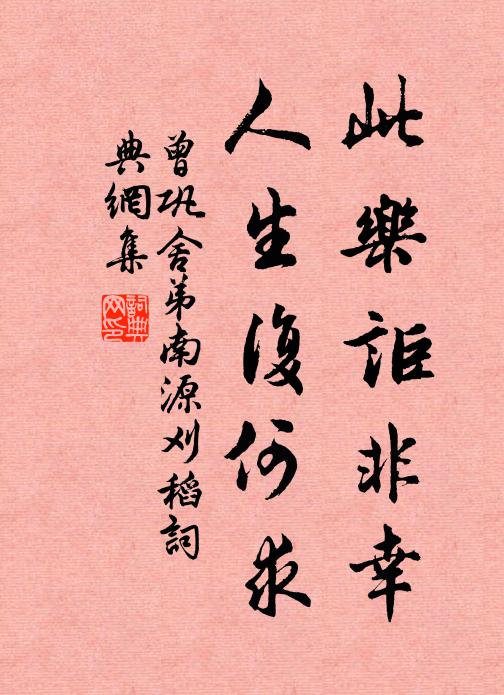 此樂詎非幸
人生復何求
曾巩舍弟南源刈稻詞
典網集
詞典網印